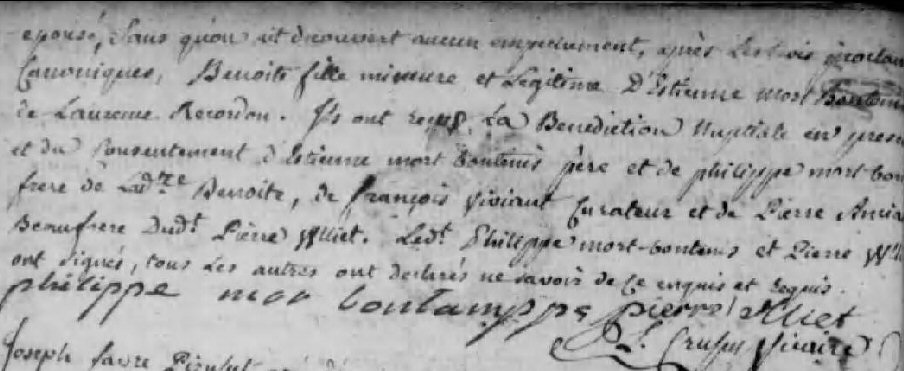 epousé, sans qu'on ait decouvert aucun empechement, après les trois proclam
Canoniques, Benoite fille mineure et Légitime D'Estienne mort Bontems
de Laurence Recordon. Ils ont reçus La Benediction Nuptiale en prese
et du Consentement d'Estienne mort bontems père et de philippe mort bon
frere de Ladte Benoite, de françois viviant Curateur et de Pierre
Beaufrere Dudt Pierre Vuliet. Ledt Philippe mort-bontems et Pierre
ont signés, tous Les autres ont declarés ne savoir de ce enquis et requis.
philippe mor bontamps pierre Vuliet
vicaire
Joseph favre